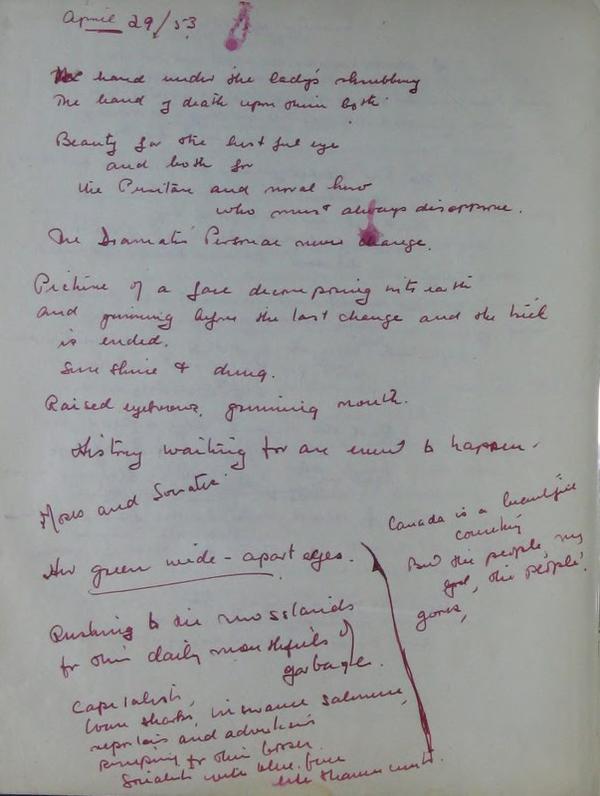 April 29/53
The hand under the lady's shrubbery
The hand of death upon them both.
Beauty for the lustful eye
and both for
the Puritan and moral
who must always disapprove.
The Dramatis Personae never change.
Picture of a face decomposing into earth
and grinning before the last change and the
is ended.
Sunshine & dung.
Raised eyebrows, grinning mouth.
History waiting for an event to happen.
Moses and Socrates.
Her green wide-apart eyes.
Canada is a beautiful
country
But the people, my
god, the people!
Rushing to the
for their daily mouthfuls of
garbage.
Capitalists,
loan sharks, insurance salesmen,
reporters and advertisers
pimping for their bosses.
Socialists with blue